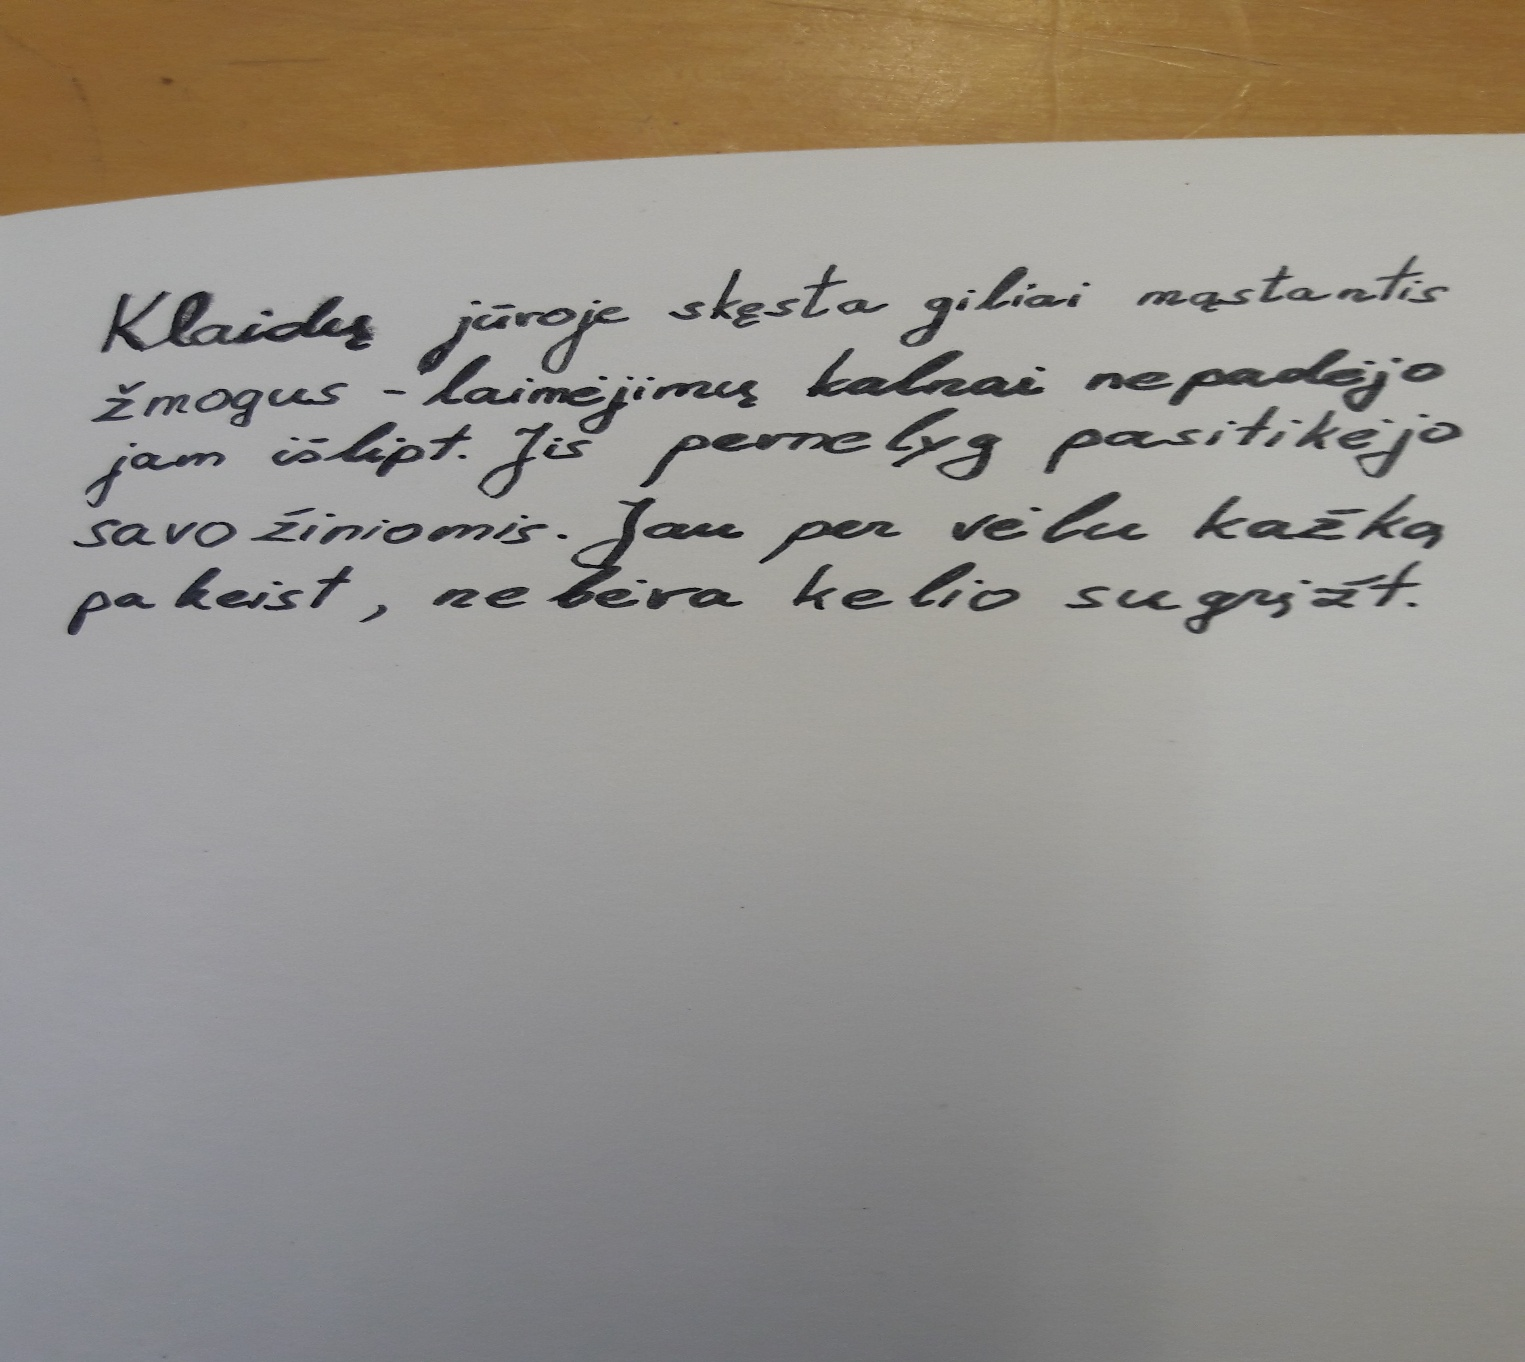 Klaidų jūroje skęsta giliai mąstantis
žmogus - laimėjimų kalnai nepadėjo
jam išlipt. Jis pernelyg pasitikėjo
savo žiniomis. Jau per vėlu kažką
pakeist, nebėra kelio sugrįžt.